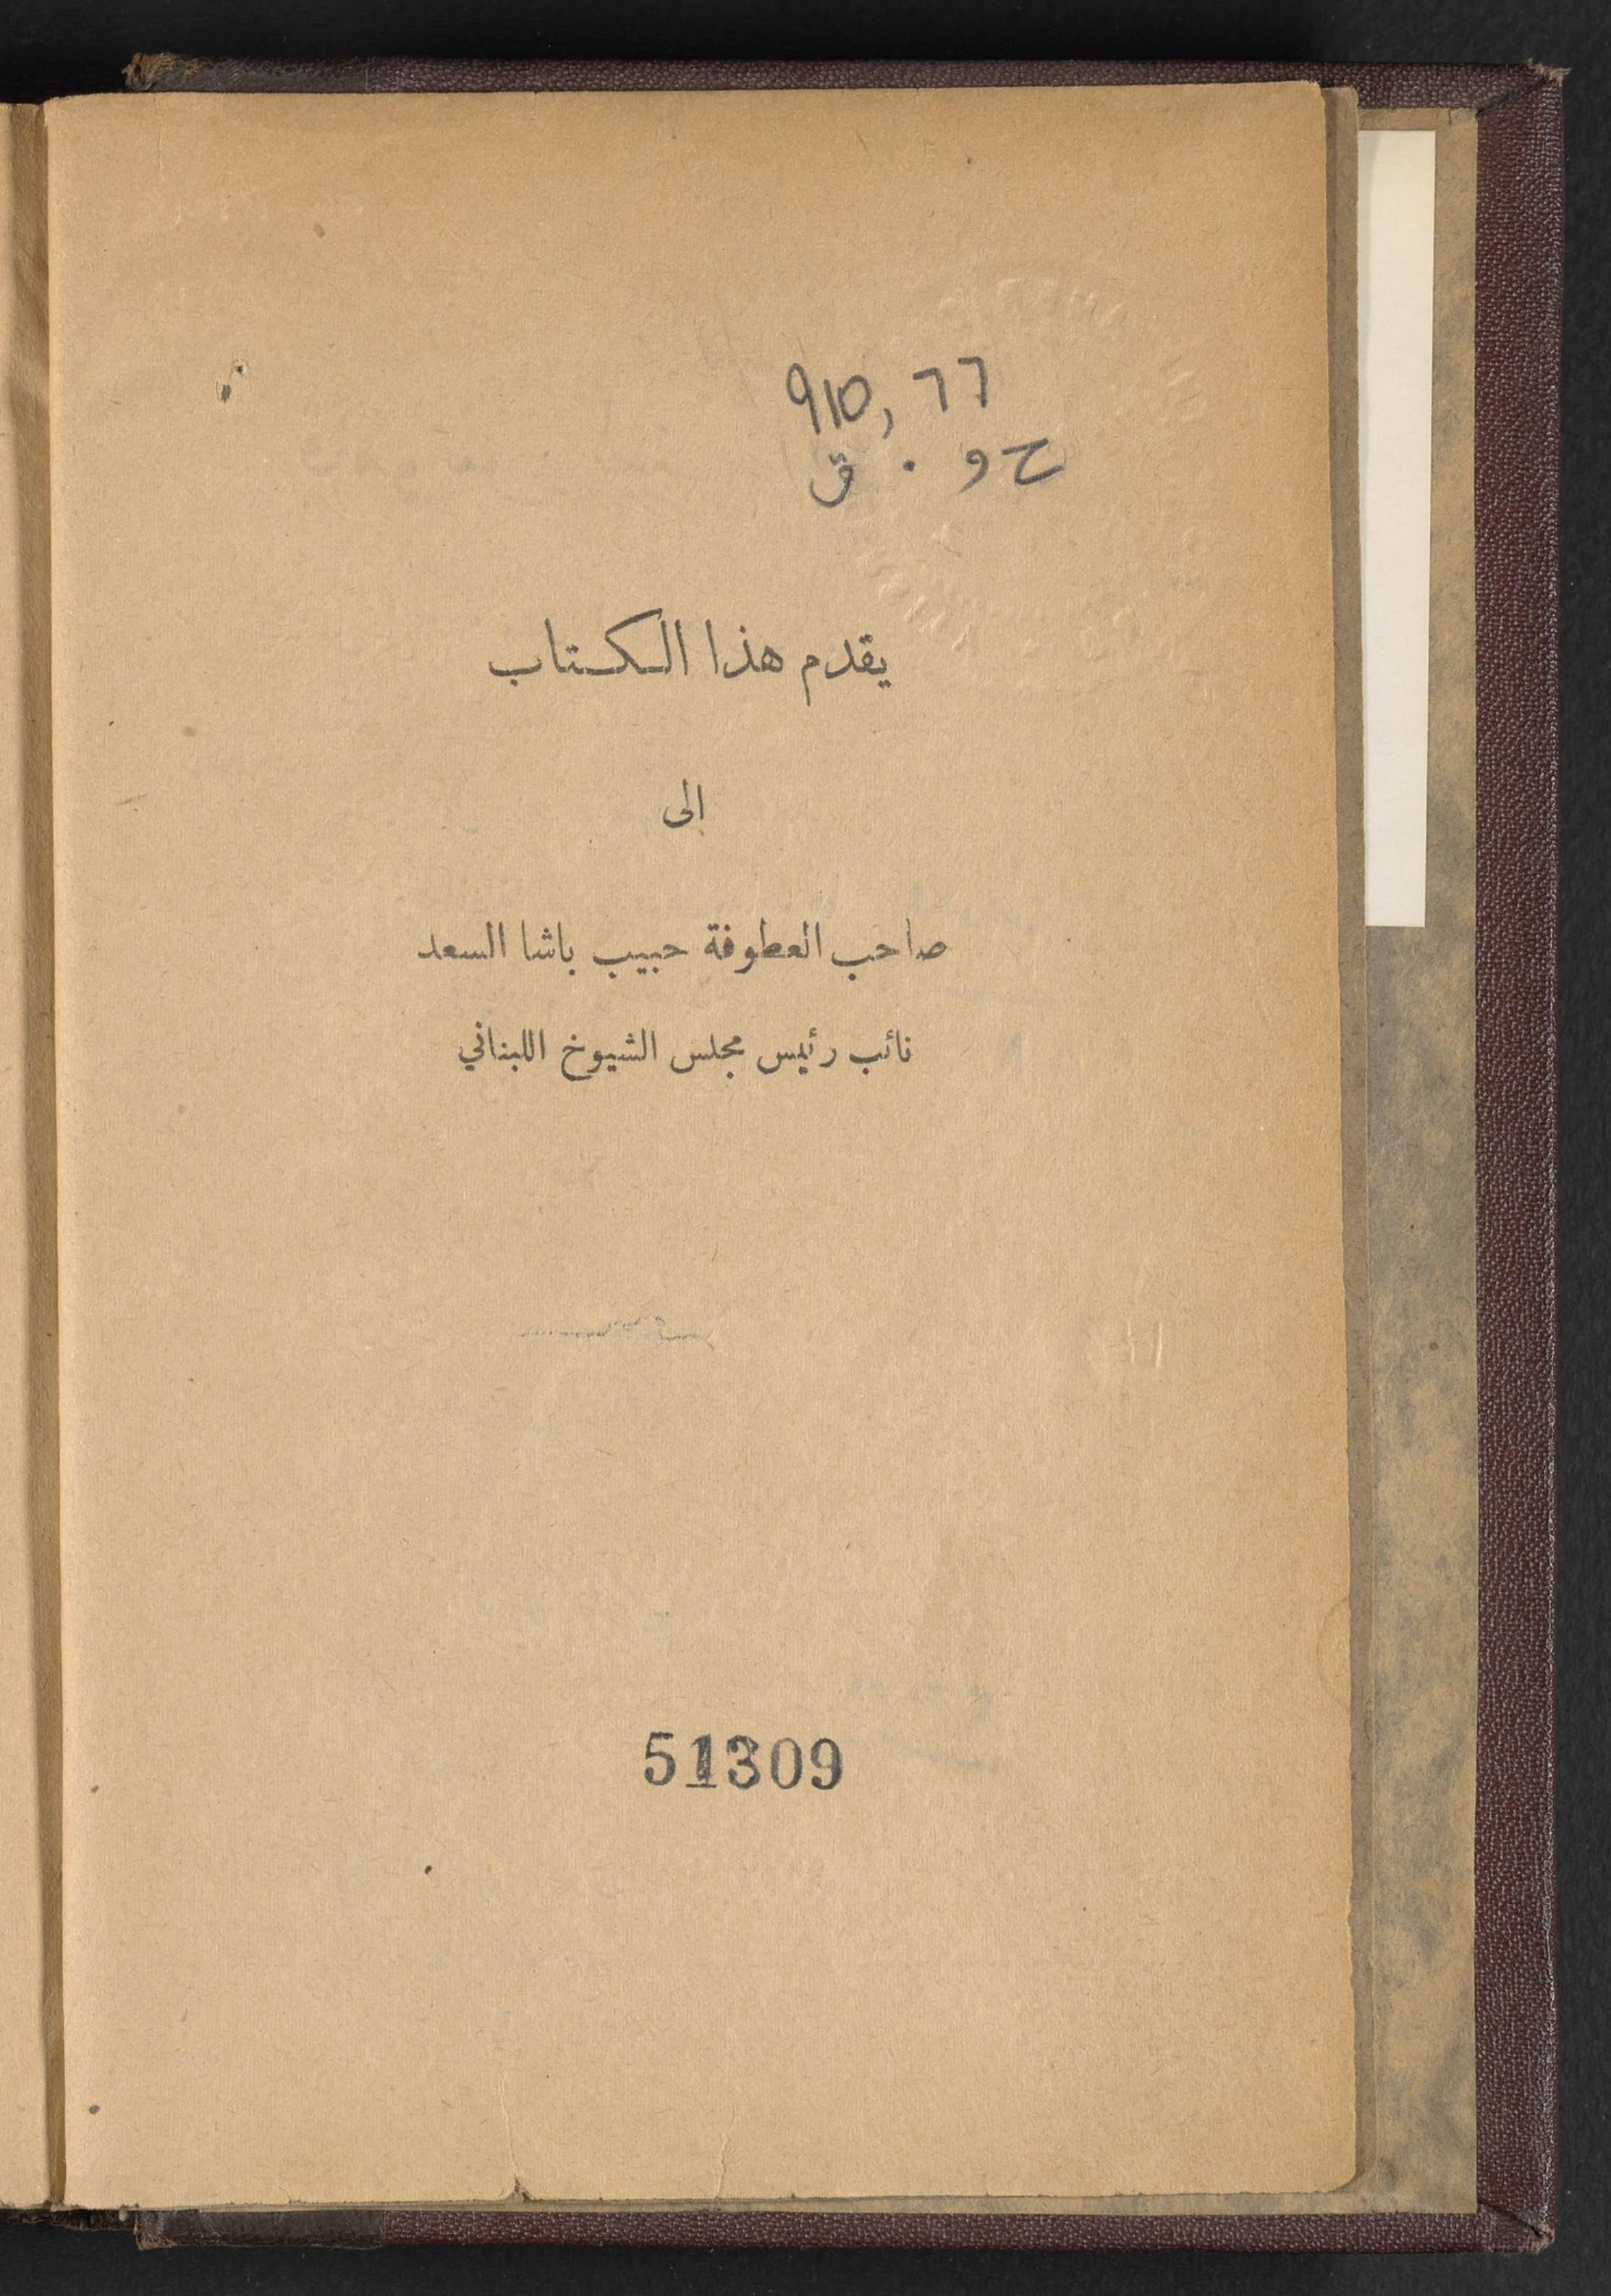 910,77
حو . ق
يقدم هذا الكتاب
الى
صاحب العطوفة حبيب باشا السعد
نائب رئيس مجلس الشيوخ اللبناني
51309